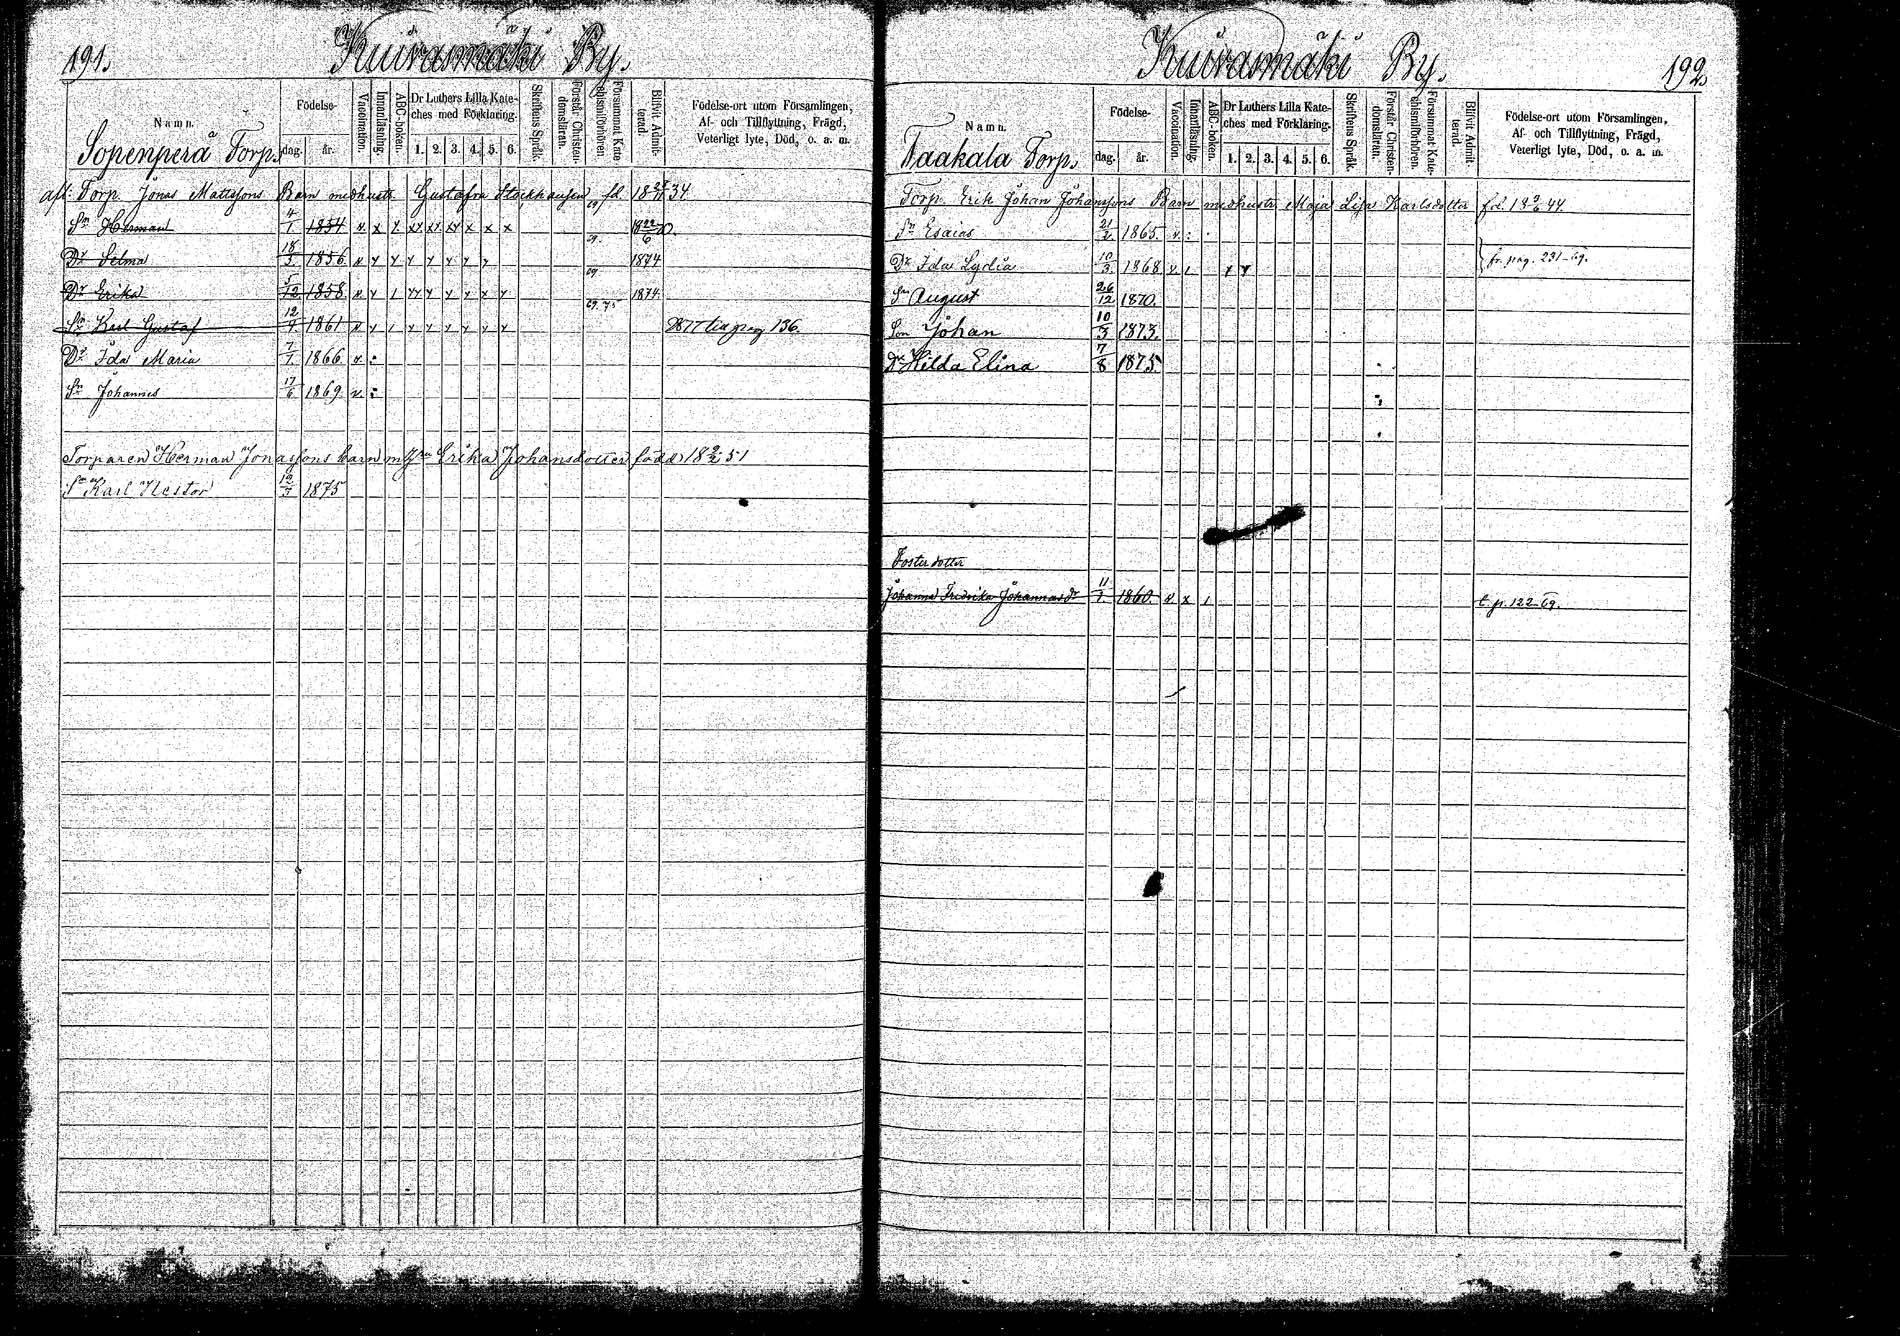 191.
Kuivasmäki By.
Namn.
Födelse-
dag.
år.
Vaccination.
Innanläsning.
ABC-boken.
Dr Luthers Lilla Kate-
ches med Förklaring.
1. 2. 3. 4. 5. 6.
Skriftens Språk.
Förstår Christen-
domsläran.
Försummat Kate-
chismiförhören.
Blifvit Admit-
terad.
Födelse-ort utom Församlingen,
Af- och Tillflyttning, Frägd,
Veterligt lyte, Död, o. a. m.
Sopenperä Torp.
Torp. Jonas Mattssons Barn med hustr. Gustafva Stockhausen fd.
Sn Herman 4/1 1854 v x
Dr Selma 18/3 1856 v 1874
Dr Erika 5/12 1858 v 1874
Sn Karl Gustaf 12/4 1861 v 1877 till pag 136.
Dr Ida Maria 7/1 1866 v :
Sn Johannes 17/6 1869 v :
Torparen Herman Jonassons barn m Erika Johansdotter född 18 2/2 51
Sn Karl Nestor 12/3 1875
Kuivasmäki By.
192.
Namn.
Födelse-
dag.
år.
Vaccination.
Innanläsning.
ABC-boken.
Dr Luthers Lilla Kate-
ches med Förklaring.
1. 2. 3. 4. 5. 6.
Skriftens Språk.
Förstår Christen-
domsläran.
Försummat Kate-
chismiförhören.
Blifvit Admit-
terad.
Födelse-ort utom Församlingen,
Af- och Tillflyttning, Frägd,
Veterligt lyte, Död, o. a. m.
Taakala Torp.
Torp. Erik Johan Johanssons Barn med hustr Maja Lisa Karlsdotter fd. 18 9/6 44.
Sn Esaias 21/2 1865. v :
Dr Ida Lydia 10/3 1868 v fr. pag. 231-69.
Sn August 26/12 1870.
Son Johan 10/3 1873.
Dr Hilda Elina 7/8 1875
Foster dotter
Johanna Fredrika Johannasdr 11/1 1860. v x t. p. 122-69.